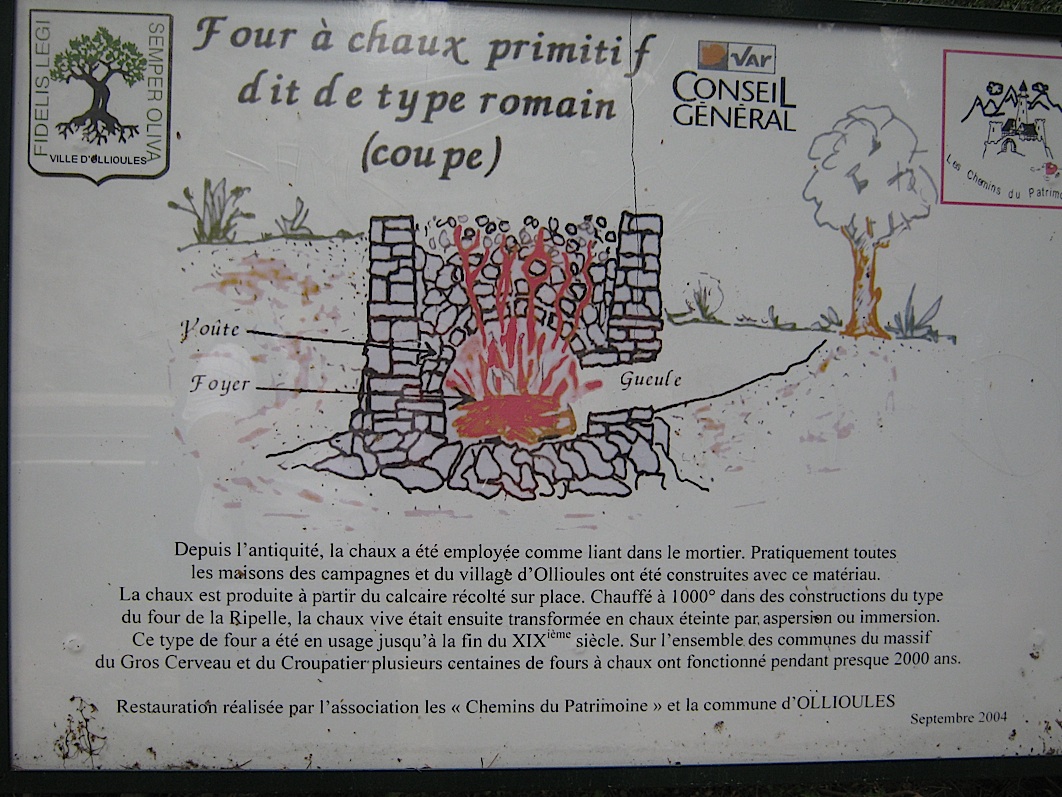 FIDELIS LEGI
SEMPER OLIVA
VILLE D'OLLIOULES
Four à chaux primitif
dit de type romain
(coupe)
Var
CONSEIL
GÉNÉRAL
Les Chemins du Patrimo
Voûte
Foyer
Gueule
Depuis l'antiquité, la chaux a été employée comme liant dans le mortier. Pratiquement toutes
les maisons des campagnes et du village d'Ollioules ont été construites avec ce matériau.
La chaux est produite à partir du calcaire récolté sur place. Chauffé à 1000° dans des constructions du type
du four de la Ripelle, la chaux vive était ensuite transformée en chaux éteinte par aspersion ou immersion.
Ce type de four a été en usage jusqu'à la fin du XIXième siècle. Sur l'ensemble des communes du massif
du Gros Cerveau et du Croupatier plusieurs centaines de fours à chaux ont fonctionné pendant presque 2000 ans.
Restauration réalisée par l'association les « Chemins du Patrimoine » et la commune d'OLLIOULES
Septembre 2004